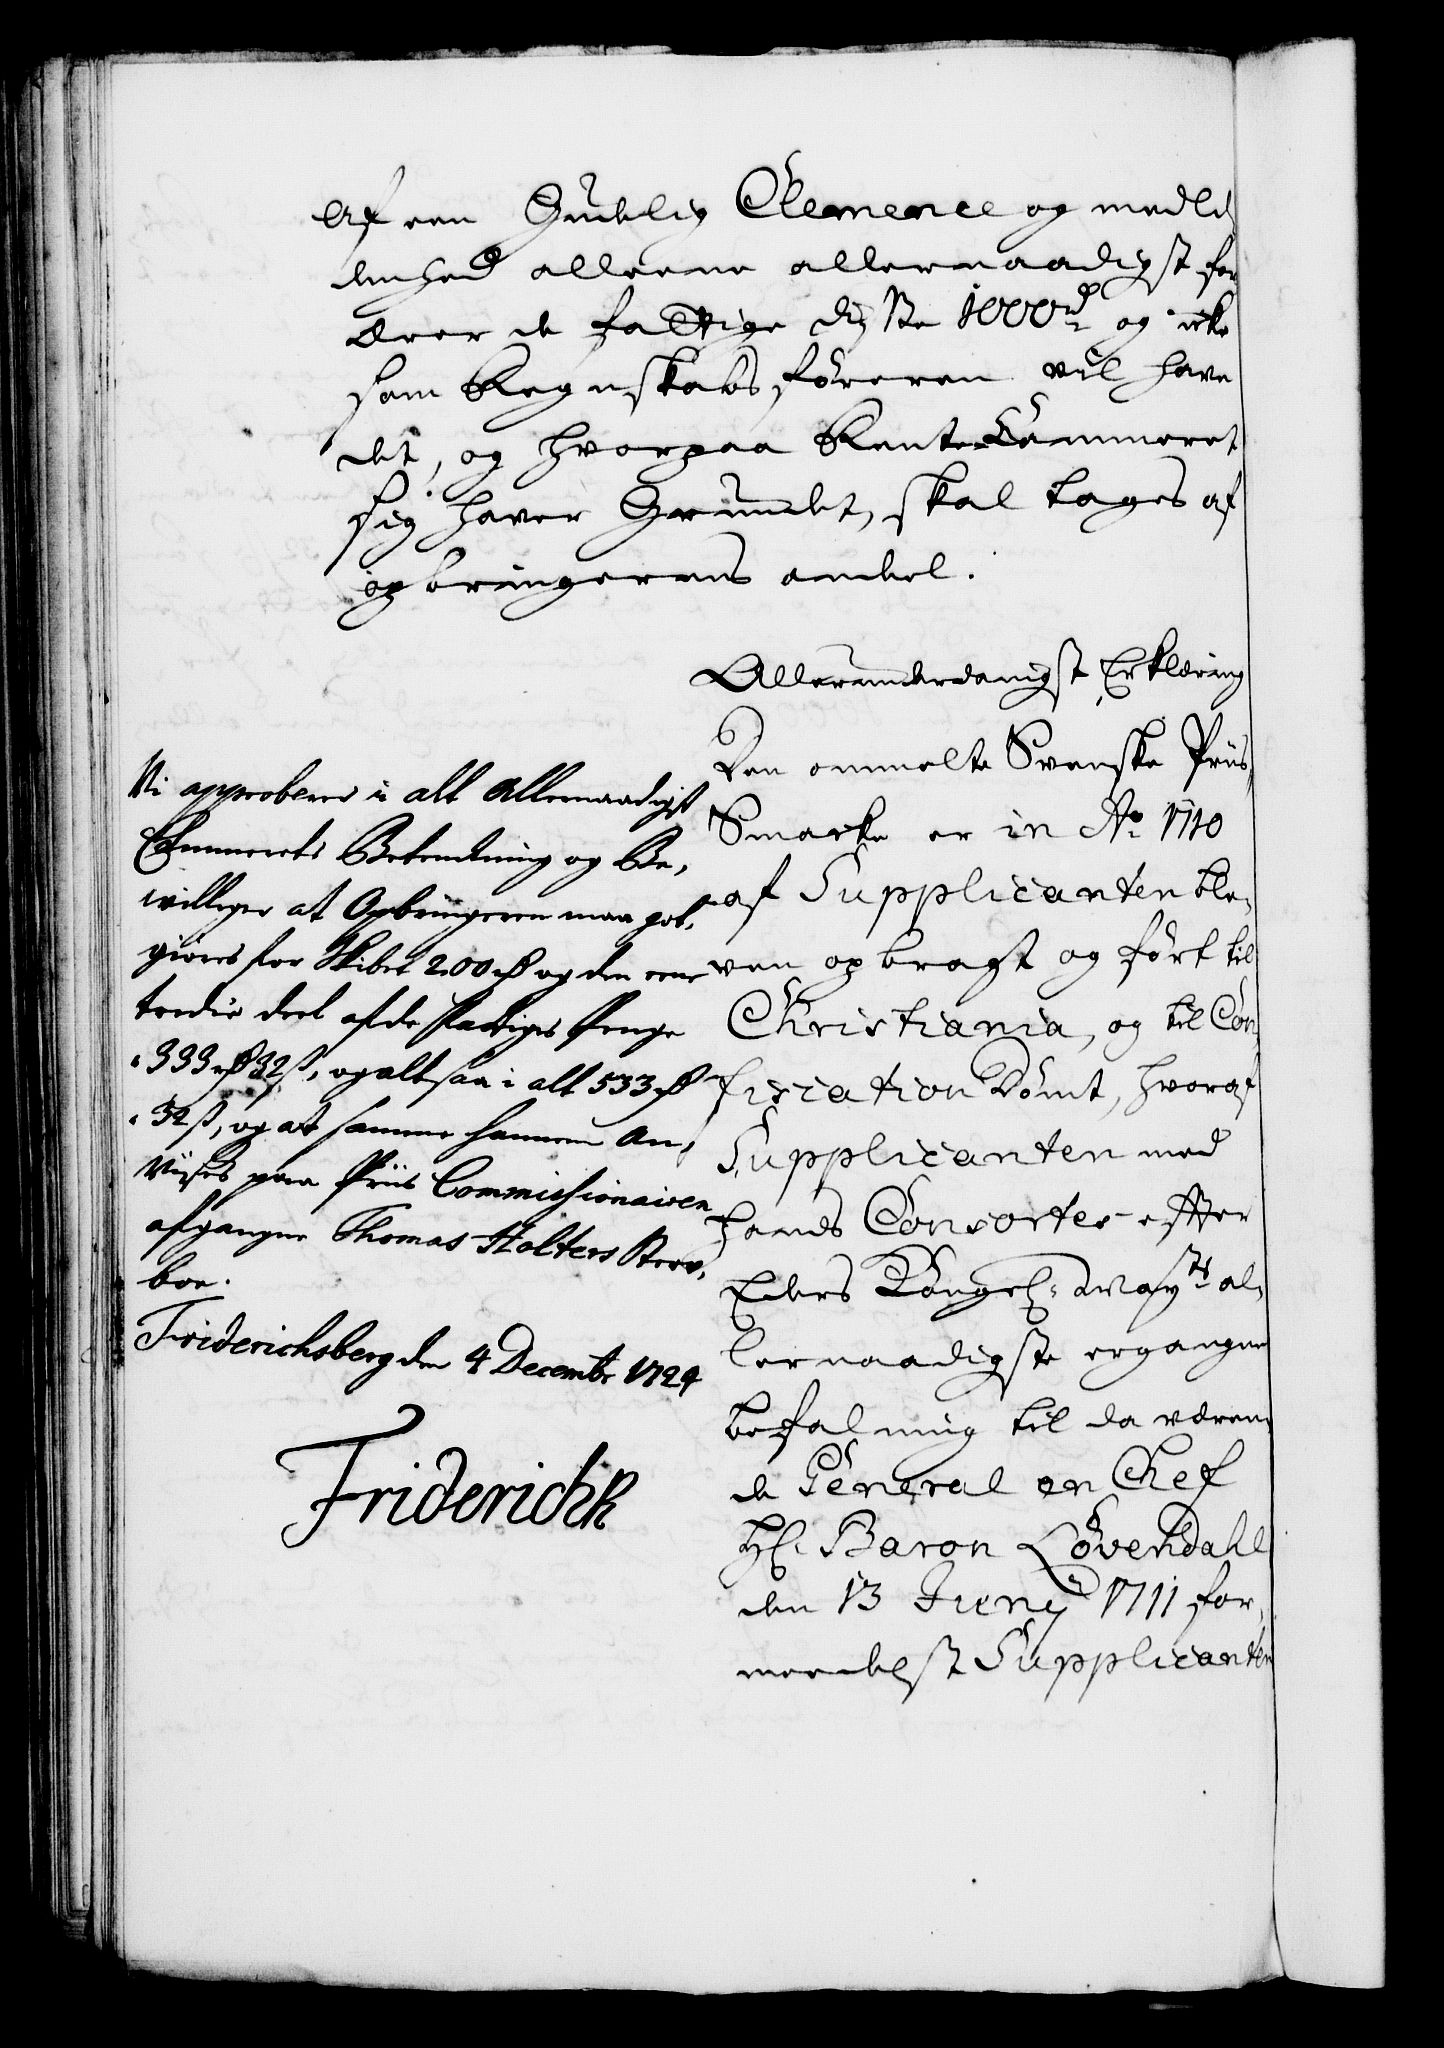 Af een Gudelig Clemence og medli,
denhed alleene allernaadigst for
ærer de fattige disse 1000 rd og icke
som Regnskabs føreren vil have
det, og hvorpaa Rente Cammeret
sig haver Grundet, skal tages af
opbringerens andeel.
Allerunderdanigst Erklæring
Den ommelte Svenske Priis,
Smacke er in Ao 1710
af Supplicanten ble,
ven opbragt og ført til
Christiania, og til Con,
fiscation Dømt, hvoraf
Supplicanten med
hands Consorter efter
Eders Kongel: Mayts al,
lernaadigste ergangne
befalning til da væren,
de General en Chef
Hr. Baron Løvendahl
den 13 Junij 1711 for,
meedelst Supplicanten
Vi approberer i alt Allernaadigst
Cammerets Betænkning og Be,
williger at Opbringeren maa got,
giøres for Skibet 200 rd og den eene
tredie deel af de Fattiges Penge
333 rd 32 s, og altsaa i alt 533 rd
32 s, og at samme hannem An,
viises paa Priis Commissionairen
afgangne Thomas Holters Sterv,
boe.
Friderichsberg den 4 Decembr 1724
Friderich R